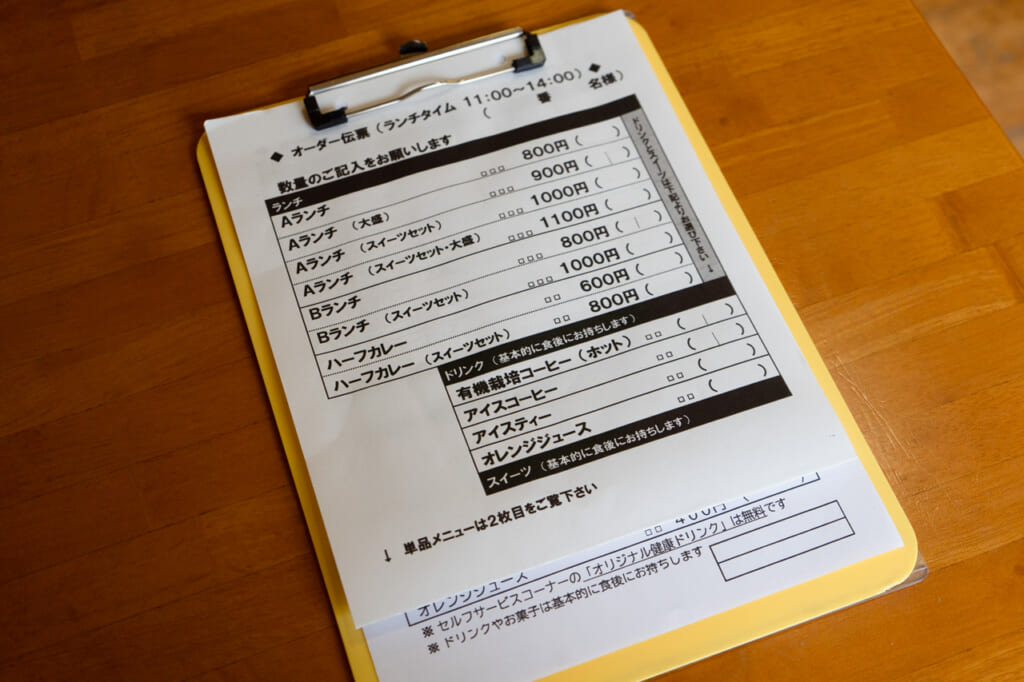 ◆ オーダー伝票（ランチタイム 11:00～14:00）◆
数量のご記入をお願いします （ 番 名様）
ランチ
Aランチ □□□ 800円（ ）
Aランチ （大盛） □□□ 900円（ ）
Aランチ （スイーツセット） □□□ 1000円（ ）
Aランチ （スイーツセット・大盛） □□□ 1100円（ ）
Bランチ 800円（ ）
Bランチ （スイーツセット） □□□ 1000円（ ）
ハーフカレー □□□ 600円（ ）
ハーフカレー （スイーツセット） □□ 800円（ ）
ドリンクとスイーツは下記よりお選び下さい ↓
ドリンク （基本的に食後にお持ちします）
有機栽培コーヒー（ホット） □□ （ ）
アイスコーヒー □□ （ ）
アイスティー □□ （ ）
オレンジジュース □□
スイーツ （基本的に食後にお持ちします）
↓ 単品メニューは2枚目をご覧下さい
オレンジジュース □□ 400円（ ）
※ セルフサービスコーナーの「オリジナル健康ドリンク」は無料です
※ ドリンクやお菓子は基本的に食後にお持ちします